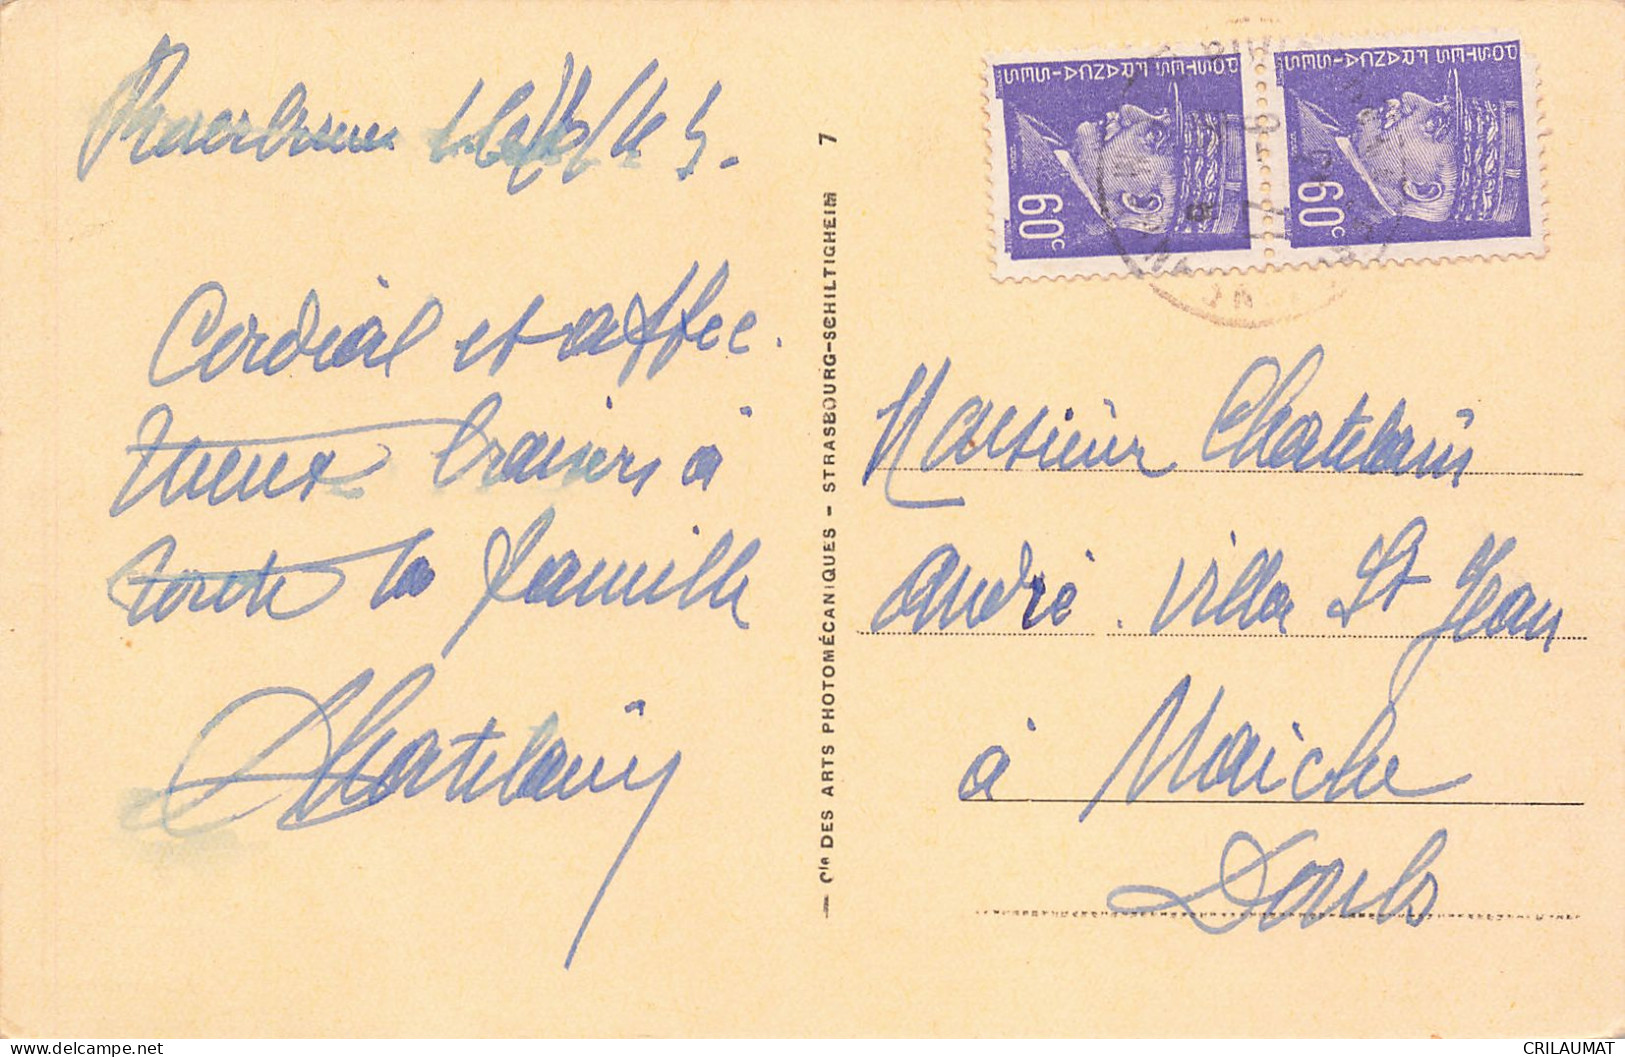 Cordial et affec.
tueux baisers à
toute la famille
Chatelain
— Cie DES ARTS PHOTOMÉCANIQUES — STRASBOURG-SCHILTIGHEIM 7
POSTES FRANÇAISES
60c
POSTES FRANÇAISES
60c
Monsieur Chatelain
André. Villa St Jean
à Maiche
Doubs
CRILAUMAT